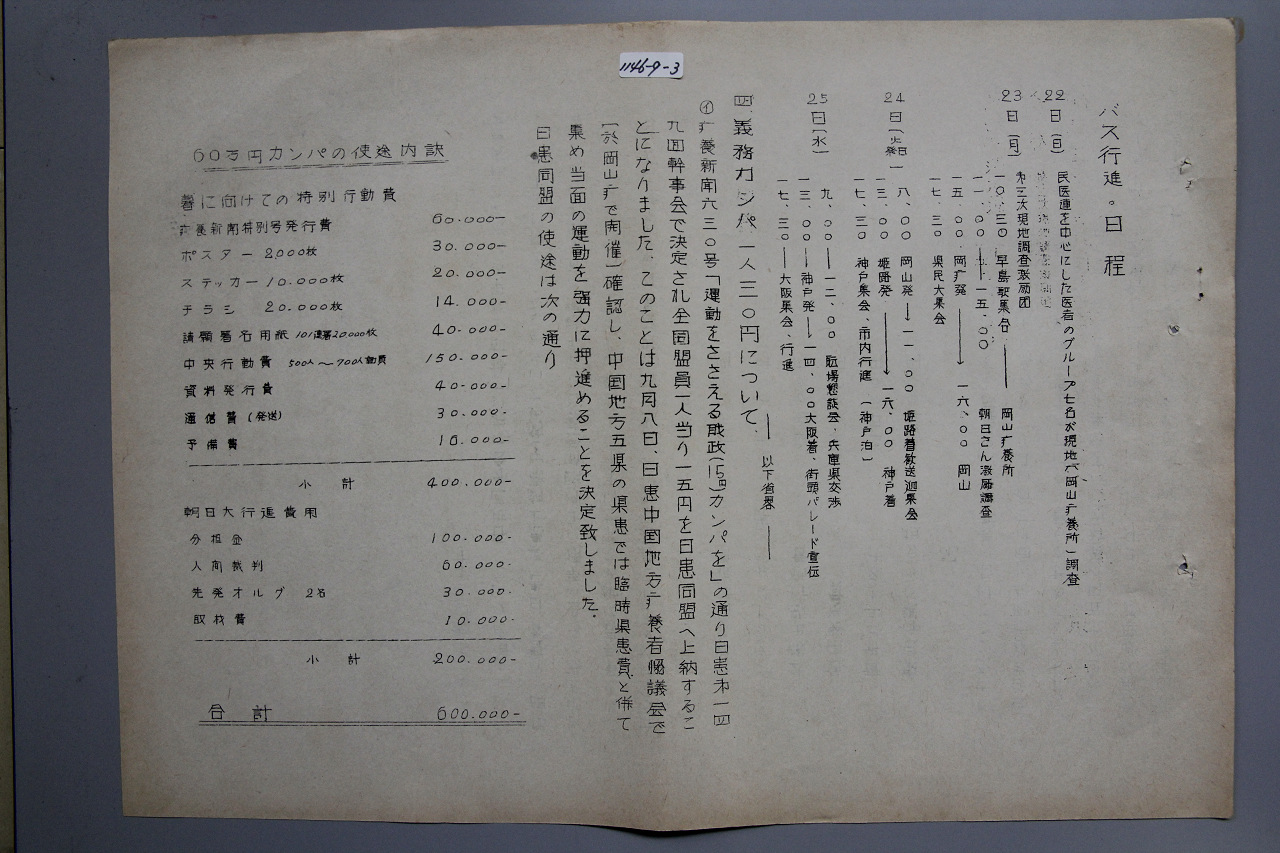 1146-9-3
バス行進・日程
22日(日)
民医連を中心にした医者のグループ七名が現地(岡山疒養所)調査
第三次現地調査激励団
23日(月)
一〇、三〇 早島駅集合――岡山疒養所
一一、〇〇――一五、〇〇 朝日さん激励調査
一五、〇〇 岡疒発――→一六、〇〇 岡山
一七、三〇 県民大集会
24日(火・祭日)
八、〇〇 岡山発――→一一、〇〇 姫路着歓送迎集会
一三、〇〇 姫路発――→一六、〇〇 神戸着
一七、三〇 神戸集会、市内行進(神戸泊)
25日(水)
九、〇〇――一二、〇〇 職場懇談会、兵庫県交渉
一三、〇〇――神戸発――一四、〇〇大阪着、街頭パレード宣伝
一七、三〇――大阪集会、行進
四、義務カンパ一人三〇円について、
――以下省畧――
㋑疒養新聞六三〇号「運動をささえる財政(15円)カンパを」の通り日患第一四
九回幹事会で決定され全同盟員一人当り一五円を日患同盟へ上納するこ
とになりました、このことは九月八日、日患中国地方疒養者協議会で
(於岡山疒で開催)確認し、中国地方五県の県患では臨時県患費と併て
集め当面の運動を強力に押進めることを決定致しました。
日患同盟の使途は次の通り
60万円カンパの使途内訳
署に向けての特別行動費
疒養新聞特別号発行費 60.000-
ポスター 2.000枚 30.000-
ステッカー 10.000枚 20.000-
チラシ 20.000枚 14.000-
請願署名用紙 10人連署20000枚 40.000-
中央行動費 500人～700人動員 150.000-
資料発行費 40.000-
通信費(発送) 30.000-
予備費 16.000-
小計 400.000-
朝日大行進費用
分担金 100.000-
人向裁判 60.000-
先発オルグ 2名 30.000-
取材費 10.000-
小計 200.000-
合計 600.000-